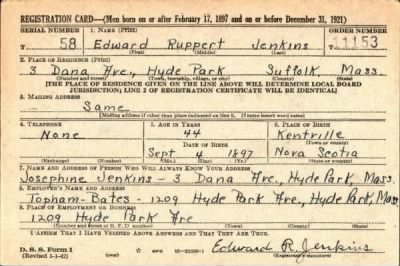 REGISTRATION CARD—(Men born on or after February 17, 1897 and on or before December 31, 1921)
SERIAL NUMBER 1. NAME (Print) ORDER NUMBER
T 58 Edward Ruppert Jenkins 11153
(First) (Middle) (Last)
2. PLACE OF RESIDENCE (Print)
3 Dana Ave., Hyde Park Suffolk, Mass.
(Number and street) (Town, township, village, or city) (County) (State)
[THE PLACE OF RESIDENCE GIVEN ON THE LINE ABOVE WILL DETERMINE LOCAL BOARD
JURISDICTION; LINE 2 OF REGISTRATION CERTIFICATE WILL BE IDENTICAL]
3. MAILING ADDRESS
Same
[Mailing address if other than place indicated on line 2. If same insert word same]
4. TELEPHONE 5. AGE IN YEARS 6. PLACE OF BIRTH
None 44 Kentville
DATE OF BIRTH (Town or county)
Sept 4 1897 Nova Scotia
(Exchange) (Number) (Mo.) (Day) (Yr.) (State or country)
7. NAME AND ADDRESS OF PERSON WHO WILL ALWAYS KNOW YOUR ADDRESS
Josephine Jenkins - 3 Dana Ave., Hyde Park, Mass.
8. EMPLOYER'S NAME AND ADDRESS
Topham-Bates - 1209 Hyde Park Ave., Hyde Park, Mass
9. PLACE OF EMPLOYMENT OR BUSINESS
1209 Hyde Park Ave
(Number and street or R. F. D. number) (Town) (County) (State)
I AFFIRM THAT I HAVE VERIFIED ABOVE ANSWERS AND THAT THEY ARE TRUE.
D. S. S. Form 1
(Revised 1-1-42) (over) Edward R. Jenkins
(Registrant's signature)